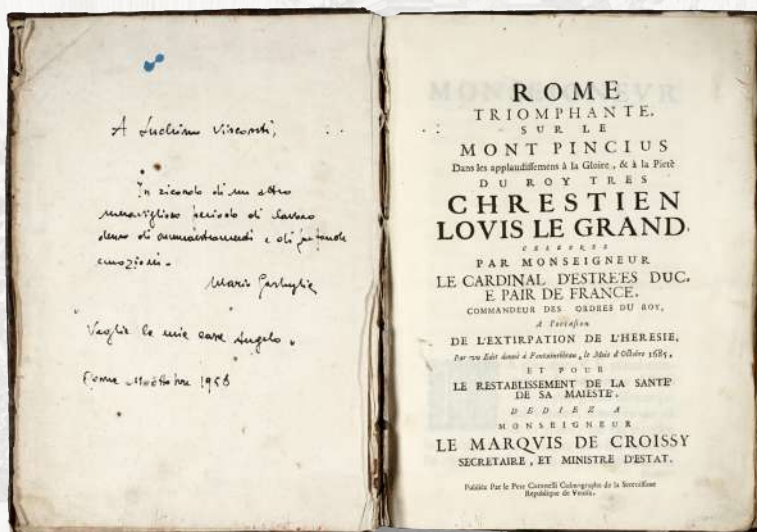 A Luchino Visconti,
In ricordo di un altro
meraviglioso periodo di lavoro
denso di ammaestramenti e di profonde
emozioni.
Mario Garbuglia
Veglia le mie care Angelo.
Roma ottobre 1958
ROME
TRIOMPHANTE.
SUR LE
MONT PINCIUS
Dans les applaudissemens à la Gloire, & à la Pietè
DU ROY TRES
CHRESTIEN
LOVIS LE GRAND,
CELEBREE
PAR MONSEIGNEUR
LE CARDINAL D'ESTRE'ES DUC,
E PAIR DE FRANCE,
COMMANDEUR DES ORDRES DU ROY,
A l'occasion
DE L'EXTIRPATION DE L'HERESIE,
Par vn Edit donné à Fontainebleau, le Mois d'Octobre 1685,
ET POUR
LE RESTABLISSEMENT DE LA SANTE'
DE SA MAIESTE'.
DEDIEZ A
MONSEIGNEUR
LE MARQVIS DE CROISSY
SECRETAIRE, ET MINISTRE D'ESTAT.
Publiéz Par le Pere Coronelli Cosmographe de la Serenissime
Republique de Venise.